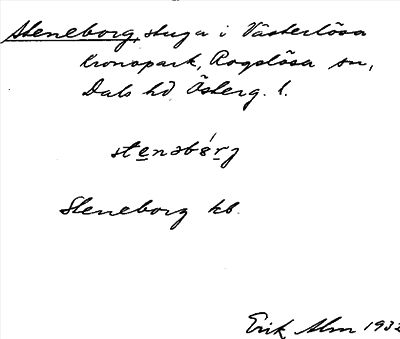 Steneborg, stuga i Västerlösa
kronopark, Rogslösa sn,
Dals hd, Österg. l.
Steneborg kb.
Erik Alm 1932